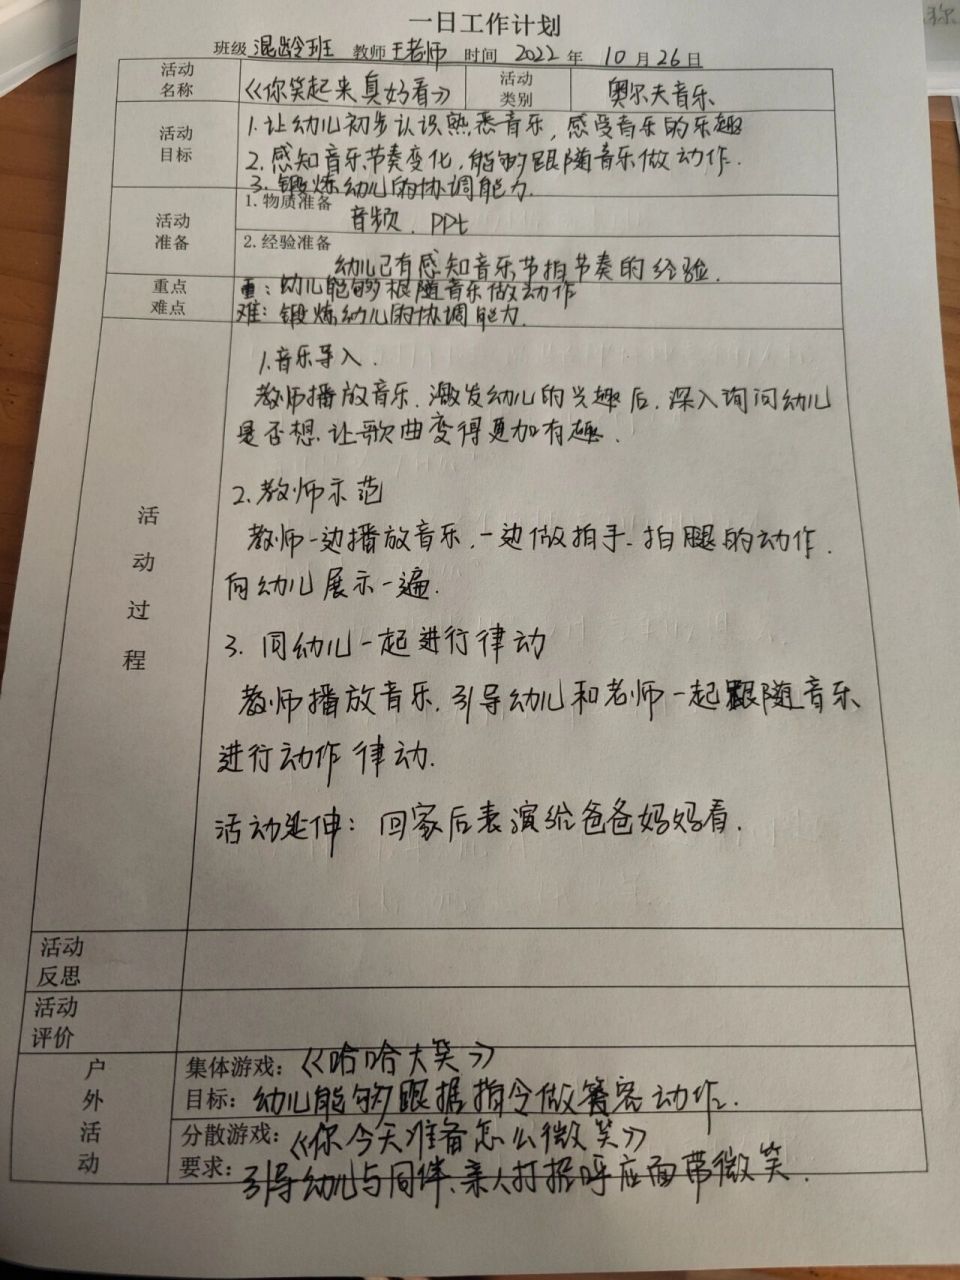 一日工作计划
班级 混龄班 教师 王老师 时间 2022 年 10 月 26 日
活动名称 《你笑起来真好看》 活动类别 奥尔夫音乐
活动目标
1.让幼儿初步认识熟悉音乐，感受音乐的乐趣
2.感知音乐节奏变化,能够跟随音乐做动作.
3.锻炼幼儿的协调能力.
活动准备
1.物质准备
音频、PPt
2.经验准备
幼儿已有感知音乐节拍节奏的经验.
重点难点
重：幼儿能够跟随音乐做动作
难：锻炼幼儿的协调能力.
活动过程
1.音乐导入.
教师播放音乐.激发幼儿的兴趣后.深入询问幼儿
是否想让歌曲变得更加有趣.
2.教师示范
教师一边播放音乐.一边做拍手、拍腿的动作.
向幼儿展示一遍.
3.同幼儿一起进行律动
教师播放音乐.引导幼儿和老师一起跟随音乐
进行动作律动.
活动延伸：回家后表演给爸爸妈妈看.
活动反思
活动评价
户外活动
集体游戏：《哈哈大笑》
目标：幼儿能够跟据指令做笑容动作.
分散游戏：《你今天准备怎么微笑》
要求：引导幼儿与同伴、亲人打招呼后面带微笑.